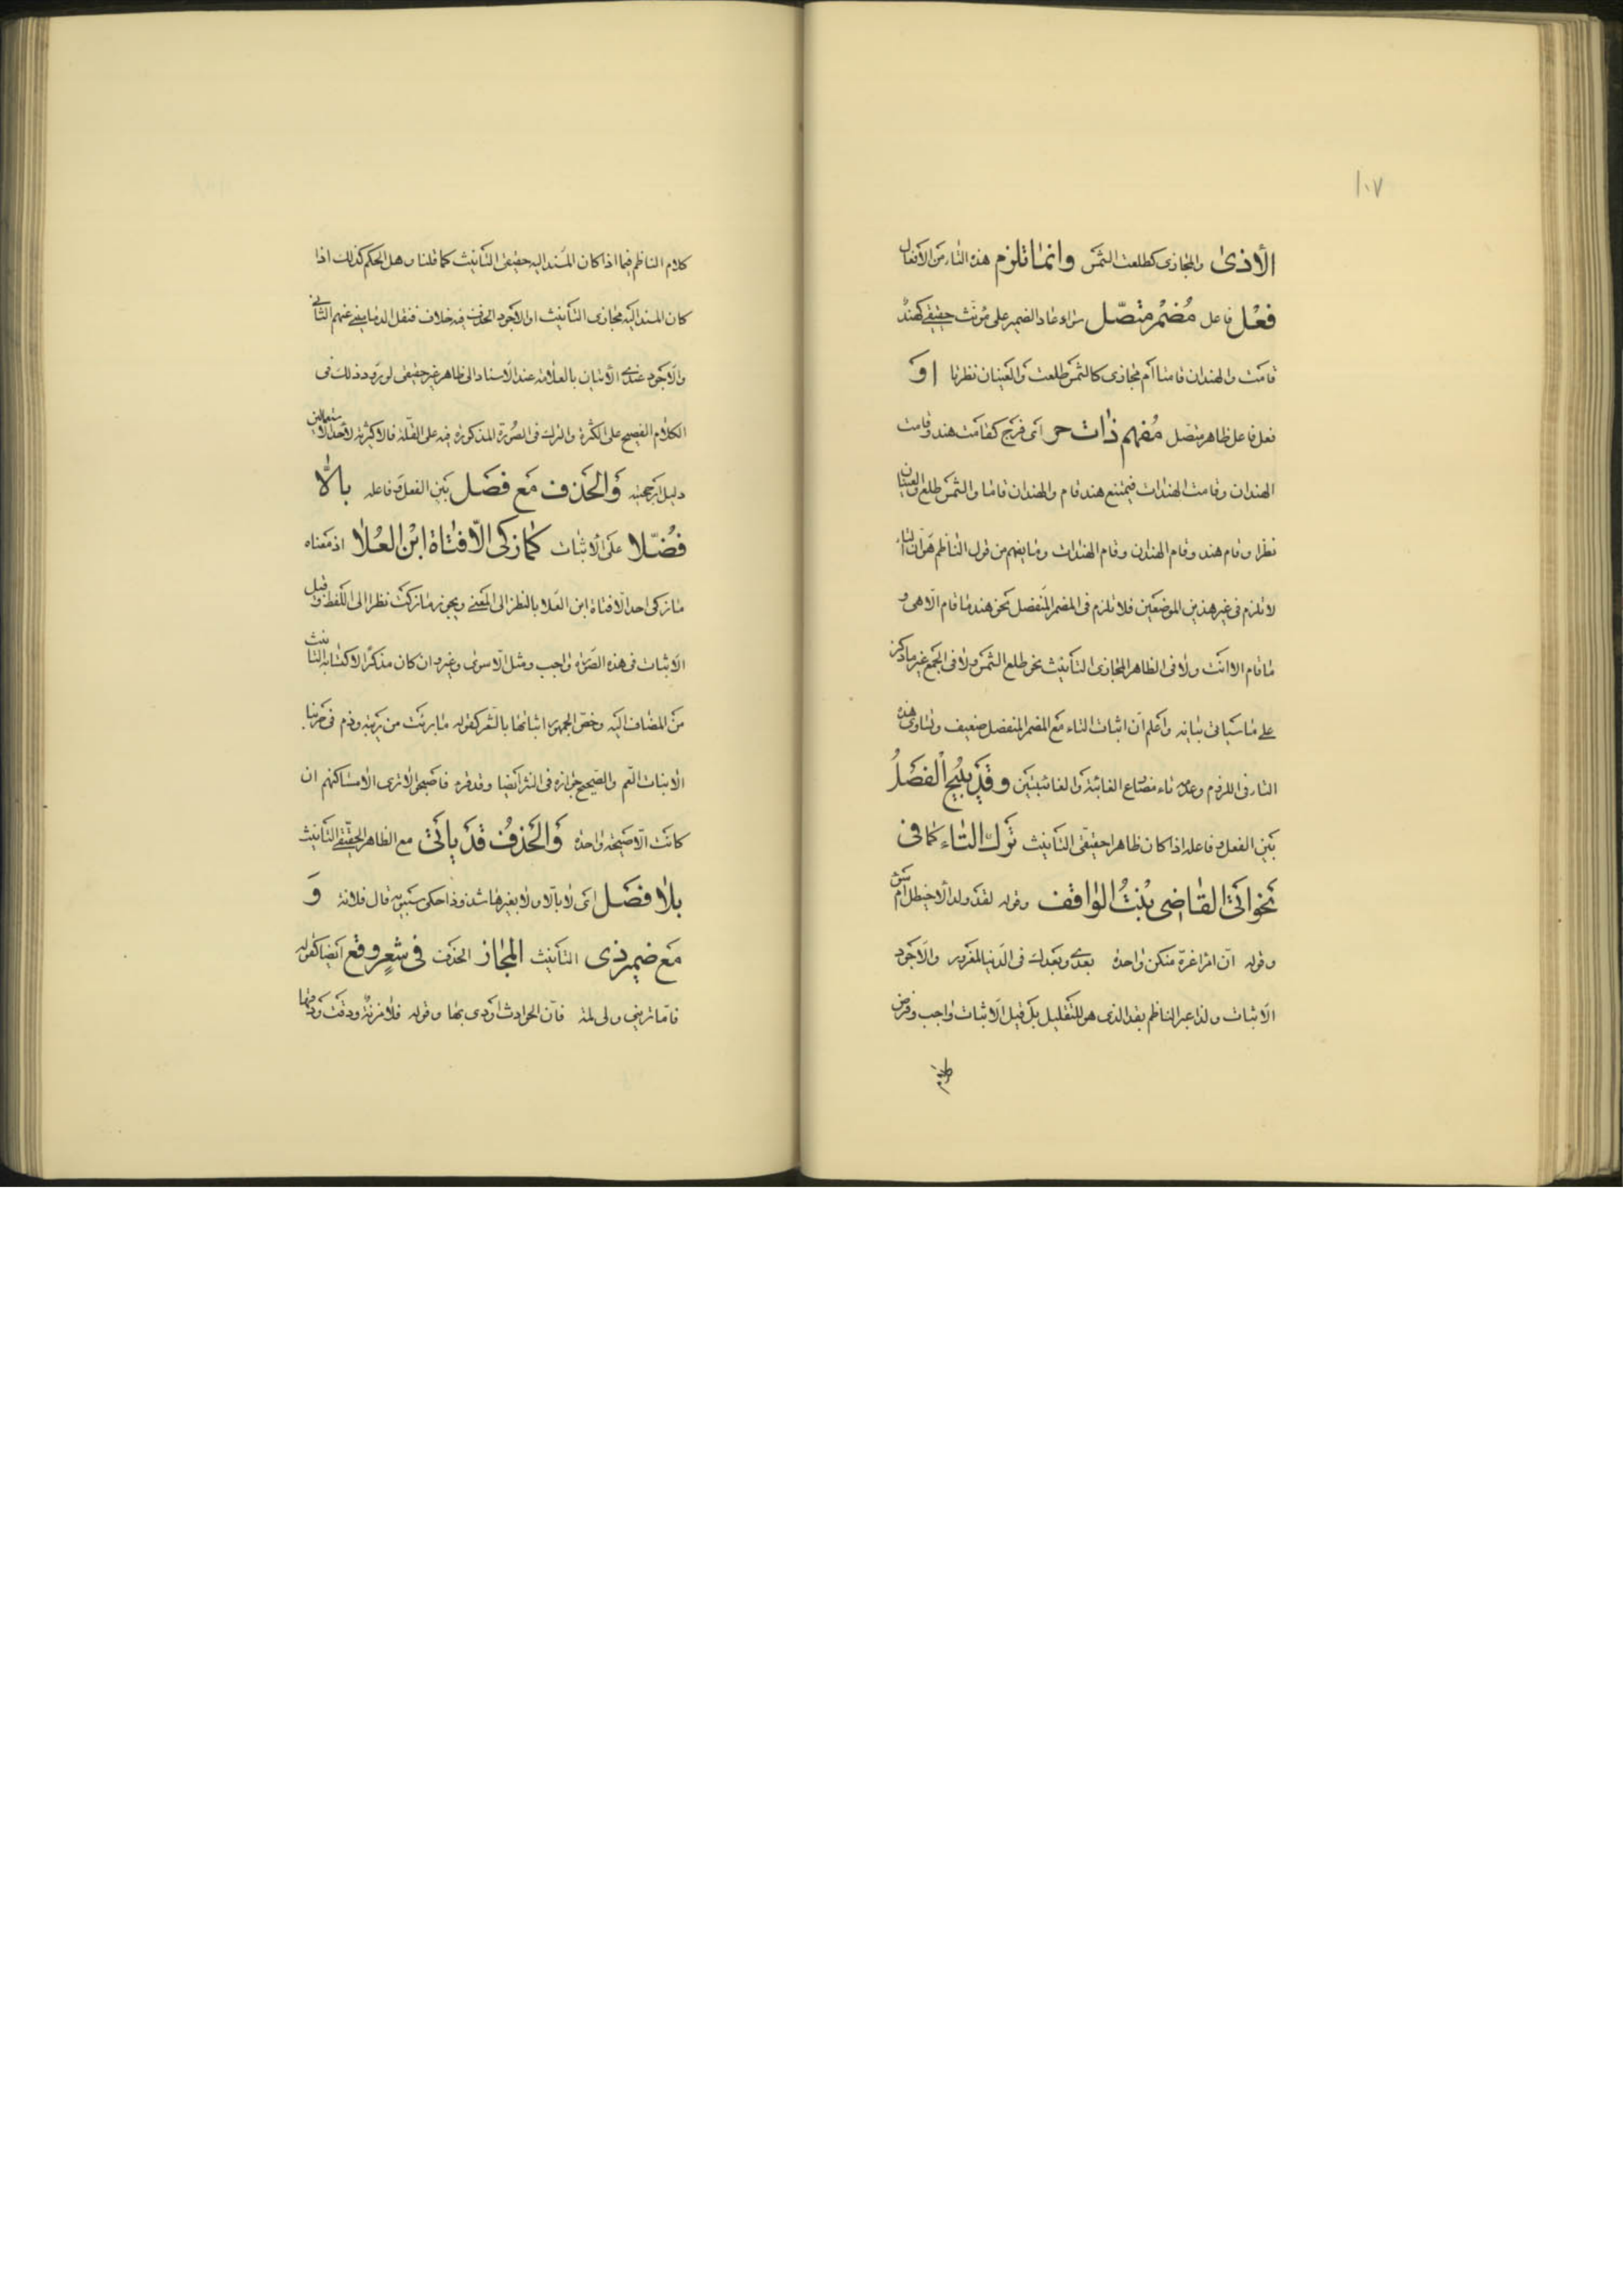 ١٠٧
الأذى والمجازى كطلعت الشمس وانما تلزم هذه التاء من الافعال
فعل فاعل مضمر متصل سواء عاد الضمير على مؤنث حقيقي كهند
قامت والهندان قامتا أم مجازى كالشمس طلعت والعينان نظرتا او
فعل فاعل ظاهر متصل مفهم ذات حر اى فرج كقامت هند وقامت
الهندان وقامت الهندات فيمتنع هند قام والهندان قاما والشمس طلع والعينان
نظرا وقام هند وقام الهندان وقام الهندات وما يفهم من قول الناظم هو ان التاء
لا تلزم فى غير هذين الموضعين فلا تلزم فى المضمر المنفصل نحو هند ما قام الا هى و
ما قام الا انت ولا فى الظاهر المجازى التأنيث نحو طلع الشمس ولا فى الجمع غير ما ذكر
على ما سياتى بيانه واعلم ان اثبات التاء مع المضمر المنفصل ضعيف وتساوى هذه
التاء فى اللزوم وعدمه تاء مضارع الغائبة والغائبتين وقد يبيح الفصل
بين الفعل وفاعله اذا كان ظاهرا حقيقى التأنيث ترك التاء كما فى
نحو اتى القاضى بنت الواقف وقوله لقد ولد الاخيطل أم
وقوله ان امرا غره منكن واحدة بعدى وبعدك فى الدنيا لمغرور والاجود
الاثبات ولذا عبر الناظم بقد الذى هو للتقليل بل قيل الاثبات واجب وفرض
كلام الناظم فيما اذا كان المسند اليه حقيقى التأنيث كما قلنا وهل الحكم كذلك اذا
كان المسند اليه مجازى التأنيث او الاجود الحذف فيه خلاف فنقل الدمامينى عنهم الثانى
والاجود عندى الاتيان بالعلامة عند الاسناد الى ظاهر غير حقيقى لورود ذلك فى
الكلام الفصيح على الكثرة والترك فى الصورة المذكورة فيه على القلة فالاكثرية لاحد الاستعمالين
دليل ارجحيته والحذف مع فصل بين الفعل وفاعله بالا
فضلا على الاثبات كما زكى الا فتاة ابن العلا اذ معناه
ما زكى احد الا فتاة ابن العلا بالنظر الى المعنى ويجوز ما زكت نظرا الى اللفظ وقيل
الاثبات فى هذه الصورة واجب ومثل الا سوى وغير وان كان مذكرا لاكتسابه التأنيث
من المضاف اليه وخص الجمهور اثباتها بالشعر كقوله ما برئت من ريبة وذم فى حربنا
الا بنات العم والصحيح جوازه فى النثر ايضا وقد قرء فاصبحوا لا ترى الا مساكنهم ان
كانت الا صيحة واحدة والحذف قد ياتى مع الظاهر الحقيقى التأنيث
بلا فصل اى لا بالا ولا بغيرها شذوذا حكى سيبويه قال فلانة و
مع ضمير ذى التأنيث المجاز الحذف فى شعر وقع ايضا كقوله
فاما ترينى ولى لمة فان الحوادث اودى بها وقوله فلا مزنة ودقت ودقها